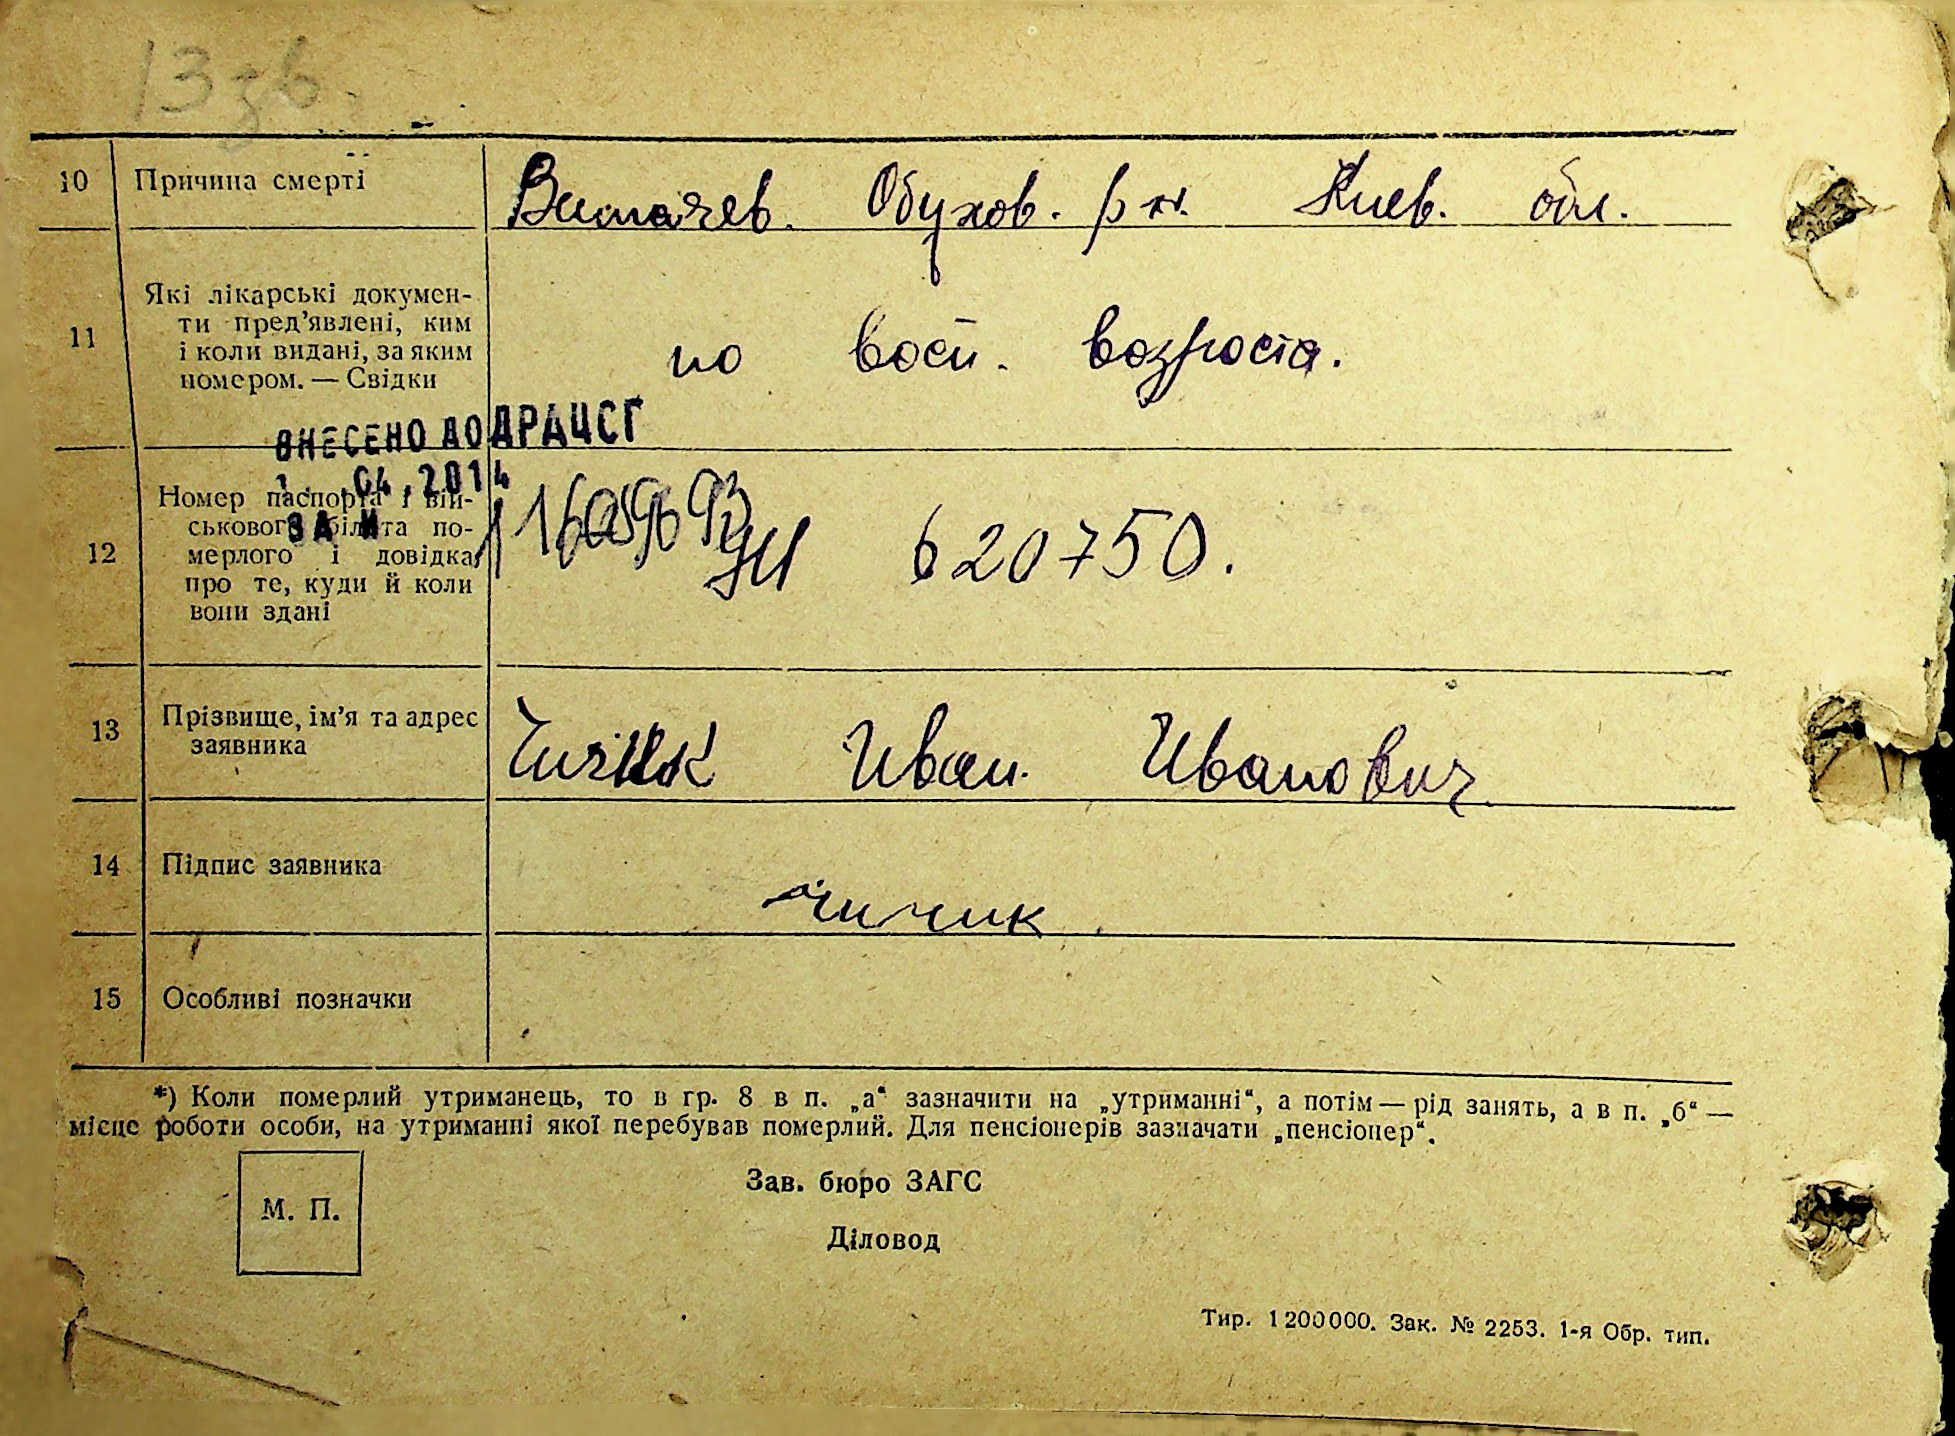 13 зв.
10 Причина смерті Витачев. Обухов. р-н. Киев. обл.
11 Які лікарські докумен-
ти пред'явлені, ким
і коли видані, за яким
номером. — Свідки
по восп. возроста.
ВНЕСЕНО ДО ДРАЦСГ
04.2014
ЗА №
12 Номер паспорта і вій-
ськового білета по-
мерлого і довідка
про те, куди й коли
вони здані
620750.
13 Прізвище, ім'я та адрес
заявника
Чичик Иван Иванович
14 Підпис заявника
Чичик
15 Особливі позначки
*) Коли померлий утриманець, то в гр. 8 в п. „а“ зазначити на „утриманні“, а потім — рід занять, а в п. „б“ —
місце роботи особи, на утриманні якої перебував померлий. Для пенсіонерів зазначати „пенсіонер“.
М. П.
Зав. бюро ЗАГС
Діловод
Тир. 1200000. Зак. № 2253. 1-я Обр. тип.